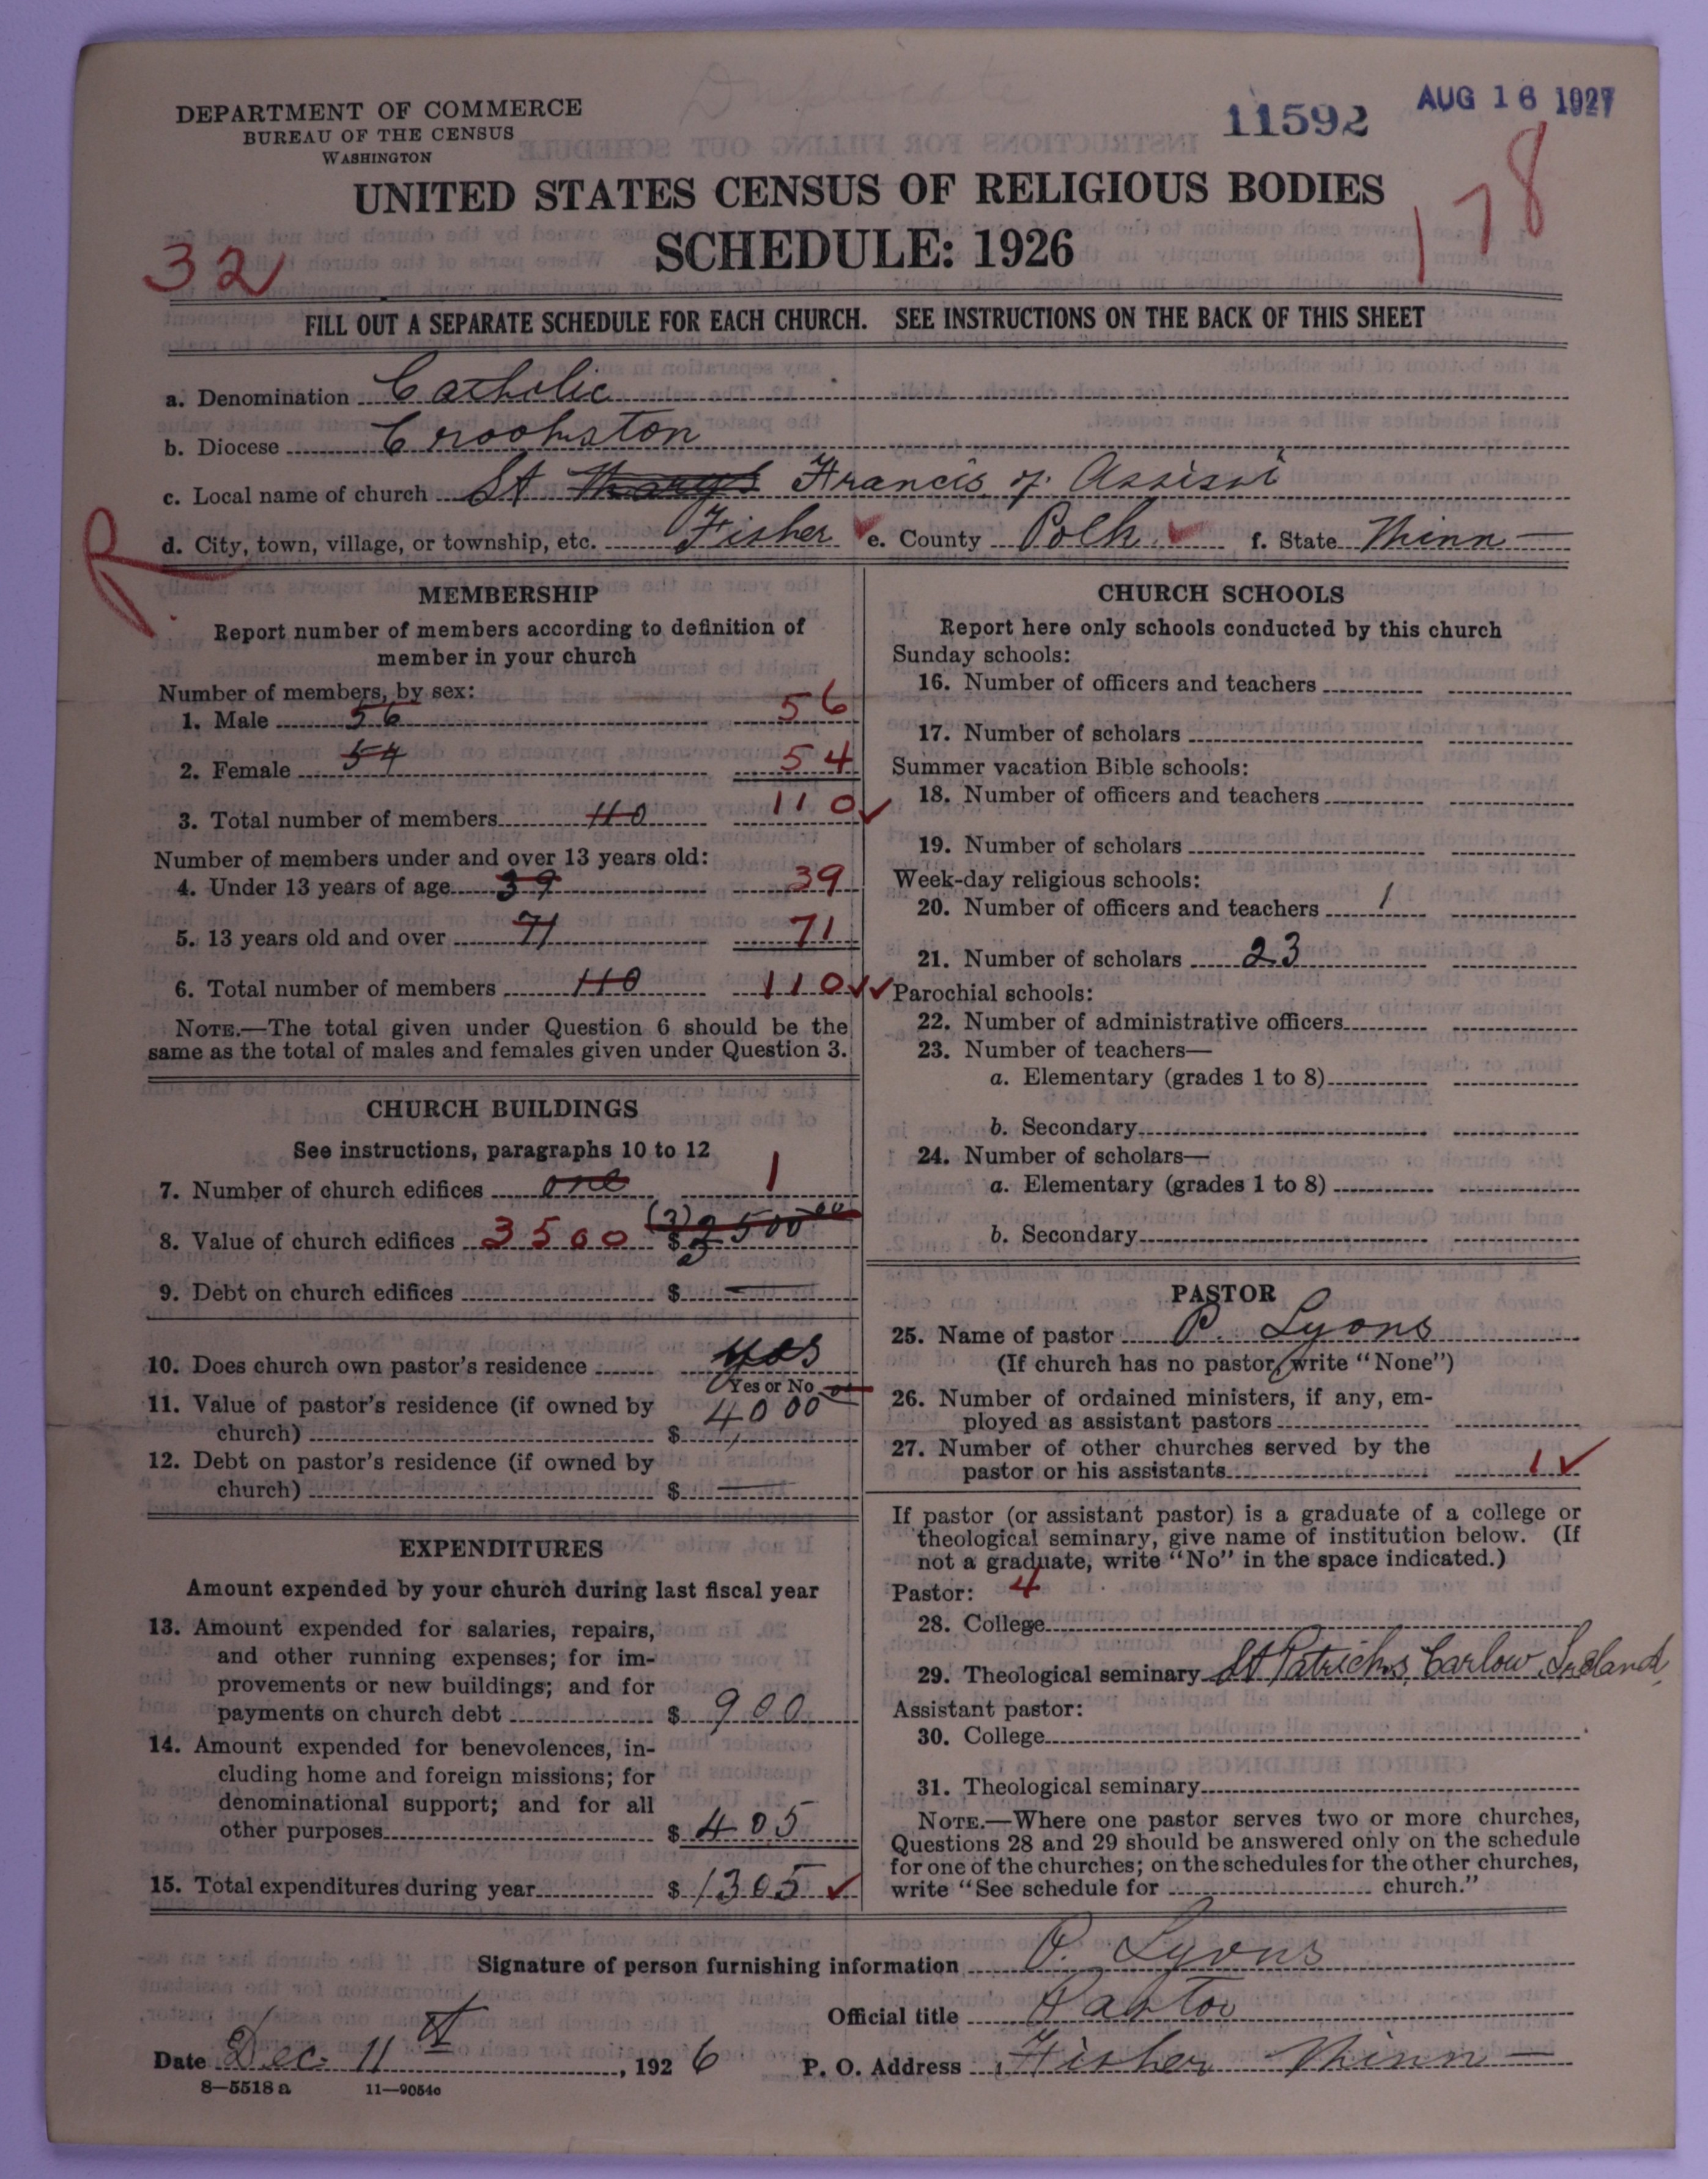 Duplicate
DEPARTMENT OF COMMERCE
BUREAU OF THE CENSUS
WASHINGTON
11592
AUG 16 1927
178
UNITED STATES CENSUS OF RELIGIOUS BODIES
SCHEDULE: 1926
32
FILL OUT A SEPARATE SCHEDULE FOR EACH CHURCH. SEE INSTRUCTIONS ON THE BACK OF THIS SHEET
a. Denomination Catholic
b. Diocese Crookston
c. Local name of church St Marys Francis of Assissi
d. City, town, village, or township, etc. Fisher e. County Polk f. State Minn
R
MEMBERSHIP
Report number of members according to definition of
member in your church
Number of members, by sex:
1. Male 56 56
2. Female 54 54
3. Total number of members 110 110
Number of members under and over 13 years old:
4. Under 13 years of age 39 39
5. 13 years old and over 71 71
6. Total number of members 110 110
NOTE.—The total given under Question 6 should be the
same as the total of males and females given under Question 3.
CHURCH BUILDINGS
See instructions, paragraphs 10 to 12
7. Number of church edifices one 1
8. Value of church edifices 3500 (3) $ 3500 00
9. Debt on church edifices $ —
10. Does church own pastor's residence yes
Yes or No
11. Value of pastor's residence (if owned by
church) $ 4000
12. Debt on pastor's residence (if owned by
church) $ —
EXPENDITURES
Amount expended by your church during last fiscal year
13. Amount expended for salaries, repairs,
and other running expenses; for im-
provements or new buildings; and for
payments on church debt $ 900
14. Amount expended for benevolences, in-
cluding home and foreign missions; for
denominational support; and for all
other purposes $ 405
15. Total expenditures during year $ 1305
CHURCH SCHOOLS
Report here only schools conducted by this church
Sunday schools:
16. Number of officers and teachers
17. Number of scholars
Summer vacation Bible schools:
18. Number of officers and teachers
19. Number of scholars
Week-day religious schools:
20. Number of officers and teachers 1
21. Number of scholars 23
Parochial schools:
22. Number of administrative officers
23. Number of teachers—
a. Elementary (grades 1 to 8)
b. Secondary
24. Number of scholars—
a. Elementary (grades 1 to 8)
b. Secondary
PASTOR
25. Name of pastor P. Lyons
(If church has no pastor, write "None")
26. Number of ordained ministers, if any, em-
ployed as assistant pastors
27. Number of other churches served by the
pastor or his assistants 1
If pastor (or assistant pastor) is a graduate of a college or
theological seminary, give name of institution below. (If
not a graduate, write "No" in the space indicated.)
Pastor: 4
28. College
29. Theological seminary St Patricks, Carlow, Ireland,
Assistant pastor:
30. College
31. Theological seminary
NOTE.—Where one pastor serves two or more churches,
Questions 28 and 29 should be answered only on the schedule
for one of the churches; on the schedules for the other churches,
write "See schedule for church."
Signature of person furnishing information P. Lyons
Official title Pastor
Date Dec. 11st, 1926 P. O. Address Fisher Minn
8—5518 a 11—9054c